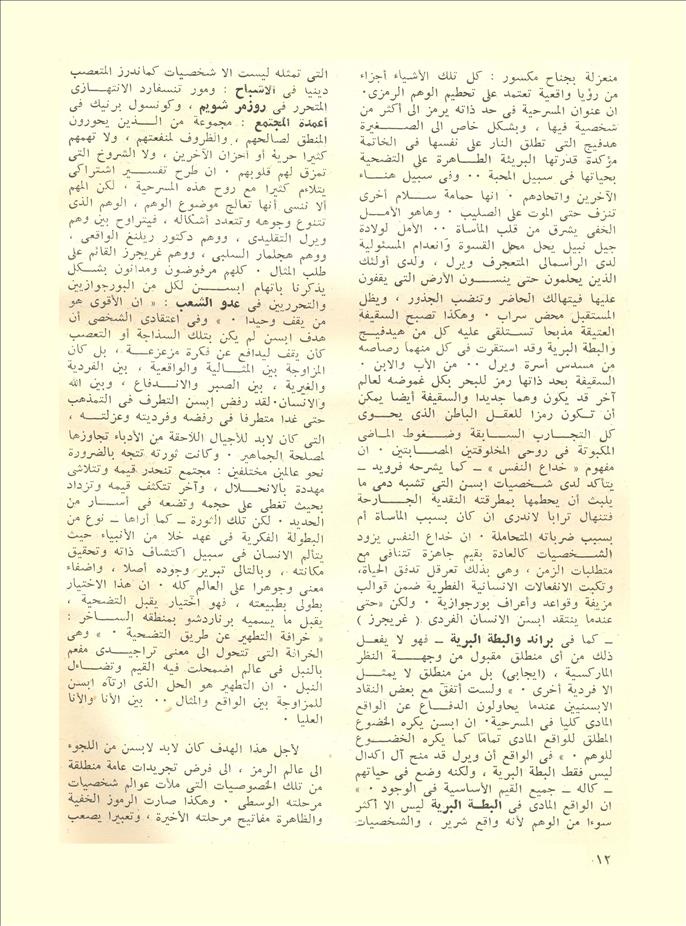 منعزلة بجناح مكسور : كل تلك الأشياء أجزاء
من رؤيا واقعية تعتمد على تحطيم الوهم الرمزى.
ان عنوان المسرحية فى حد ذاته يرمز الى أكثر من
شخصية فيها ، وبشكل خاص الى الصغيرة
هدفيج التى تطلق النار على نفسها فى الخاتمة
مؤكدة قدرتها البريئة الطاهرة على التضحية
بحياتها فى سبيل المحبة ٠٠ وفى سبيل هناء
الآخرين واتحادهم ٠ انها حمامة سلام أخرى
تنزف حتى الموت على الصليب ٠ وهاهو الأمل
الخفى يشرق من قلب المأساة ٠٠ الأمل لولادة
جيل نبيل يحل محل القسوة وانعدام المسئولية
لدى الرأسمالى المتعجرف ويرل ، ولدى أولئك
الذين يحلمون حتى ينسون الأرض التى يقفون
عليها فيتهالك الحاضر وتنضب الجذور ، ويظل
المستقبل محض سراب ٠ وهكذا تصبح السقيفة
العتيقة مذبحا تستلقى عليه كل من هيدفيج
والبطة البرية وقد استقرت فى كل منهما رصاصه
من مسدس أسرة ويرل ٠٠ من الأب والابن ٠
السقيفة بحد ذاتها رمز للبحر بكل غموضه لعالم
آخر قد يكون وهما جديدا والسقيفة أيضا يمكن
أن تكون رمزا للعقل الباطن الذى يحوى
كل التجارب السابقة وضغوط الماضى
المكبوتة فى روحى المخلوقتين المصابتين ٠ ان
مفهوم « خداع النفس » ـ كما يشرحه فرويد ـ
يتأكد لدى شخصيات ابسن التى تشبه دمى ما
يلبث أن يحطمها بمطرقته النقدية الجارحة
فتنهال ترابا لاندرى ان كان بسبب المأساة أم
بسبب ضرباته المتحاملة ٠ ان خداع النفس يزود
الشخصيات كالعادة بقيم جاهزة تتنافى مع
متطلبات الزمن ، وهى بذلك تعرقل تدفق الحياة،
وتكبت الانفعالات الانسانية الفطرية ضمن قوالب
مزيفة وقواعد وأعراف بورجوازية ٠ ولكن «حتى
عندما ينتقد ابسن الانسان الفردى ( غريجرز )
ـ كما فى براند والبطة البرية ـ فهو لا يفعل
ذلك من أى منطلق مقبول من وجهة النظر
الماركسية ، (ايجابى) بل من منطلق لا يمثل
الا فردية أخرى ٠ » ولست أتفق مع بعض النقاد
الابسنيين عندما يحاولون الدفاع عن الواقع
المادى كليا فى المسرحية. ان ابسن يكره الخضوع
المطلق للواقع المادى تماما كما يكره الخضوع
للوهم ٠ « فى الواقع أن ويرل قد منح آل اكدال
ليس فقط البطة البرية ، ولكنه وضع فى حياتهم
ـ كاله ـ جميع القيم الأساسية فى الوجود ٠ »
ان الواقع المادى فى البطة البرية ليس الا أكثر
سوءا من الوهم لأنه واقع شرير ، والشخصيات
التى تمثله ليست الا شخصيات كماندرز المتعصب
دينيا فى الأشباح : ومور تنسفارد الانتهازى
المتحرر فى روزمر شويم ، وكونسول برنيك فى
أعمدة المجتمع : مجموعة من الذين يحورون
المنطق لصالحهم ، والظروف لمنفعتهم ، ولا تهمهم
كثيرا حرية أو أحزان الآخرين ، ولا الشروخ التى
تمزق لهم قلوبهم ٠ ان طرح تفسير اشتراكى
يتلاءم كثيرا مع روح هذه المسرحية ٠ لكن المهم
ألا ننسى أنها تعالج موضوع الوهم ، الوهم الذى
تتنوع وجوهه وتتعدد أشكاله ، فيتراوح بين وهم
ويرل التقليدى ، ووهم دكتور ريلنغ الواقعى ،
ووهم هجلمار السلبى ، ووهم غريجرز القائم على
طلب المثال ٠ كلهم مرفوضون ومدانون بشكل
يذكرنا باتهام ابسن لكل من البورجوازيين
والتحرريين فى عدو الشعب : « ان الأقوى هو
من يقف وحيدا ٠ » وفى اعتقادى الشخصى أن
هدف ابسن لم يكن بتلك السذاجة أو التعصب
كان يقف ليدافع عن فكرة مزعزعة ، بل كان
المزاوجة بين المثالية والواقعية ، بين الفردية
والغيرية ، بين الصبر والاندفاع ، وبين الله
والانسان.لقد رفض إبسن التطرف فى التمذهب
حتى غدا متطرفا فى رفضه وفرديته وعزلته ،
التى كان لابد للأجيال اللاحقة من الأدباء تجاوزها
لمصلحة الجماهير ٠ وكانت ثورته تتجه بالضرورة
نحو عالمين مختلفين : مجتمع تنحدر قيمه وتتلاشى
مهددة بالانحلال ، وآخر تتكثف قيمه وتزداد
بحيث تغطى على حجمه وتضعه فى أسار من
الحديد ٠ لكن تلك الثورة ـ كما أراها ـ نوع من
البطولة الفكرية فى عهد خلا من الأنبياء حيث
يتألم الانسان فى سبيل اكتشاف ذاته وتحقيق
مكانته ، وبالتالى تبرير وجوده أصلا ، واضفاء
معنى وجوهرا على العالم كله ٠ ان هذا الاختيار
بطولى بطبيعته ، فهو اختيار يقبل التضحية ،
يقبل ما يسميه برناردشو بمنطقه الساخر :
« خرافة التطهير عن طريق التضحية ٠ » وهى
الخرافة التى تتحول الى معنى تراجيدى مفعم
بالنبل فى عالم اضمحلت فيه القيم وتضاءل
النبل ٠ ان التطهير هو الحل الذى ارتآه ابسن
للمزاوجة بين الواقع والمثال ٠٠ بين الأنا والأنا
العليا ٠
لأجل هذا الهدف كان لابد لابسن من اللجوء
الى عالم الرمز ، الى فرض تجريدات عامة منطلقة
من تلك الخصوصيات التى ملأت عوالم شخصيات
مرحلته الوسطى ٠ وهكذا صارت الرموز الخفية
والظاهرة مفاتيح مرحلته الأخيرة ، وتعبيرا يصعب
١٢